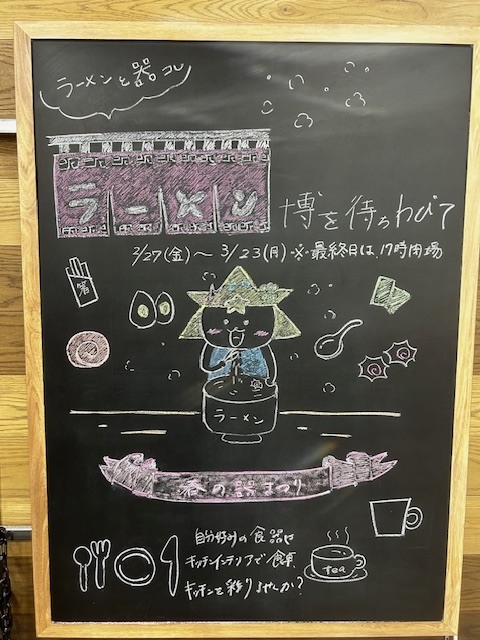 ラーメンと器コレ
ラーメン
博を待ちわびて
2/27(金)～3/23(月)※最終日は、17時閉場
箸
ラーメン
春の器まつり
自分好みの食器や
キッチンインテリアで食卓
キッチンを彩りませんか？
tea